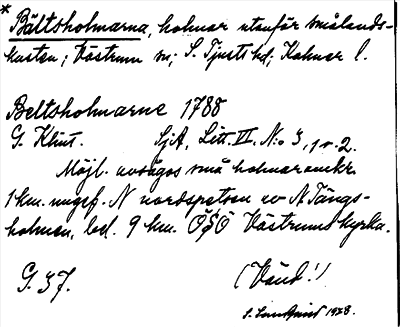 * Bältsholmarna, holmar utanför smålands-
kusten; Västrum sn; S. Tjusts hd; Kalmar l.
Beltsholmarne 1788
G. Klint. SjA, Litt. VI. N:o 3, 1 o. 2.
Möjl. avsågos små holmar omkr.
1 km. ungef. N nordspetsen av N. Tängs-
holmen, bel. 9 km. ÖSÖ Västrums kyrka.
G. 37. (Vänd!)
S. Lundqvist 1928.